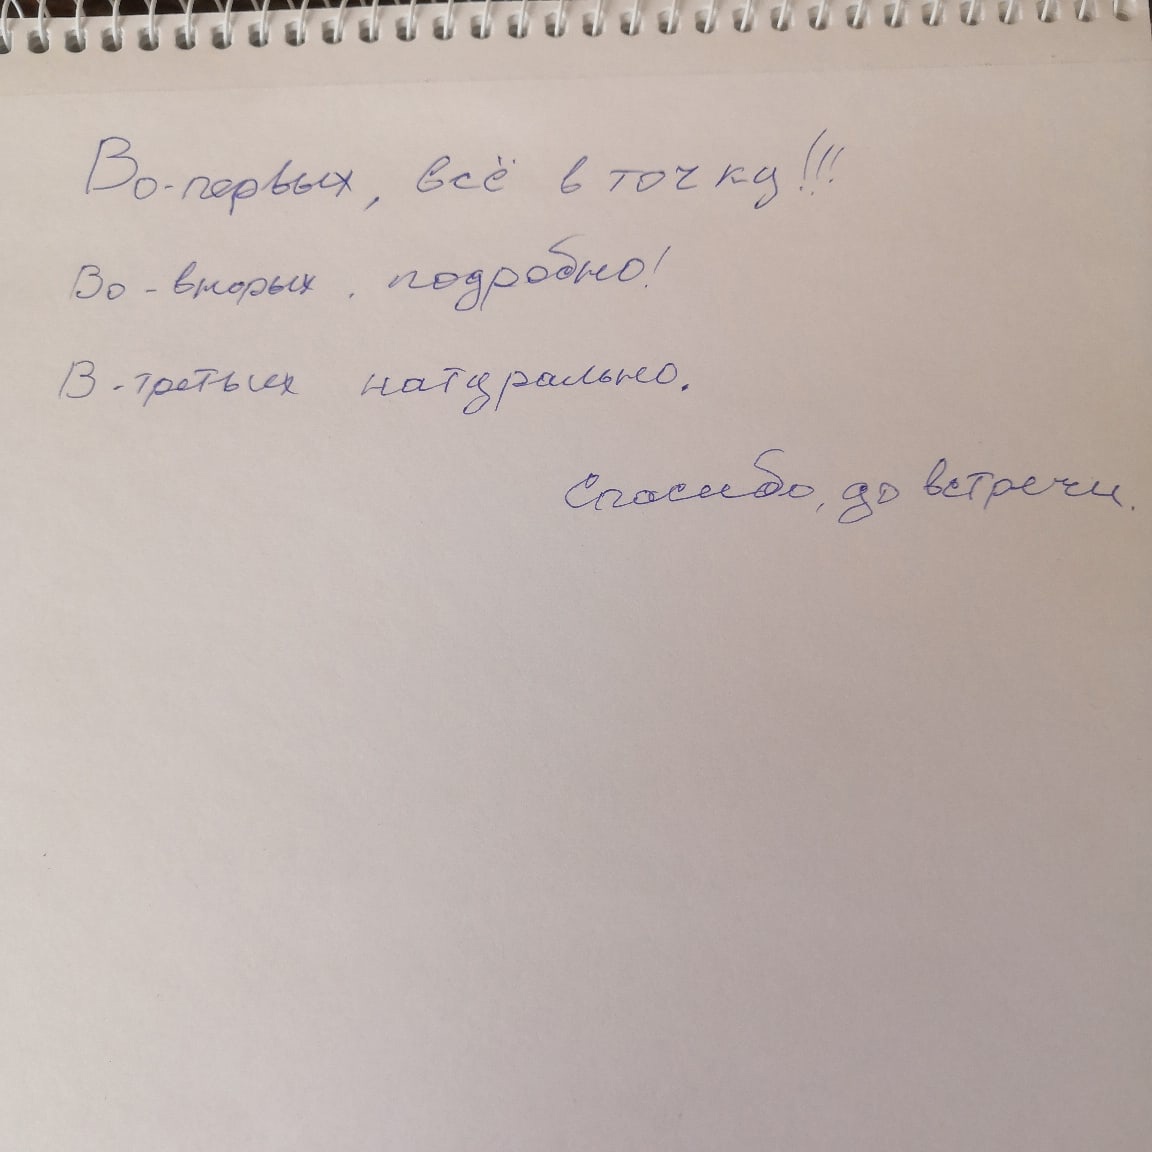 Во-первых, всё в точку!!!
Во-вторых, подробно!
В-третьих натурально.
Спасибо, до встречи.